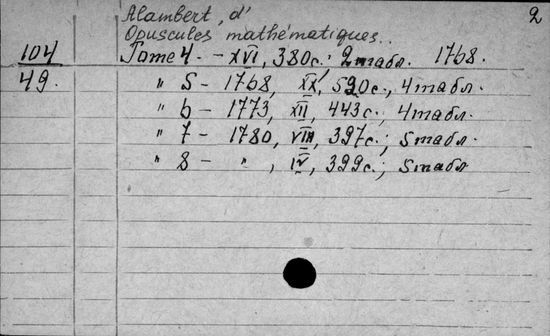 2
Alambert, d'
Opuscules mathématiques..
104 Tome 4. - XVI, 380с.; 2табл. 1768.
49. " 5 - 1768, XX, 520с., 4табл.
" 6 - 1773, XII, 443с.; 4табл.
" 7 - 1780, VIII, 397с.; 5табл.
" 8 - " , IV, 399с.; 5табл